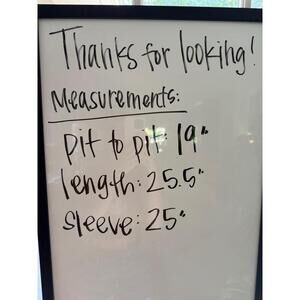 Thanks for looking!
Measurements:
pit to pit: 19"
length: 25.5"
sleeve: 25"